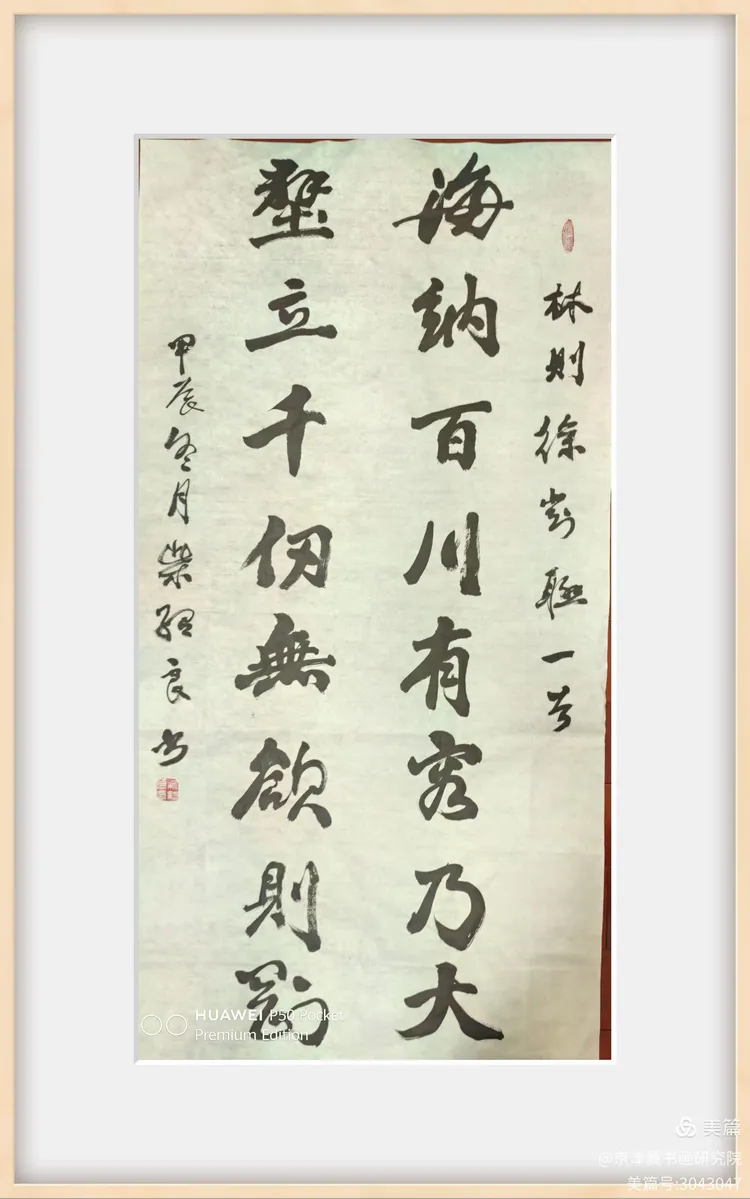 林則徐對聯一首
海納百川有容乃大
壑立千仞無欲則剛
甲辰冬月柴良书
HUAWEI P50 Pocket
Premium Edition
美篇
@京津冀书画研究院
美篇号:3043047